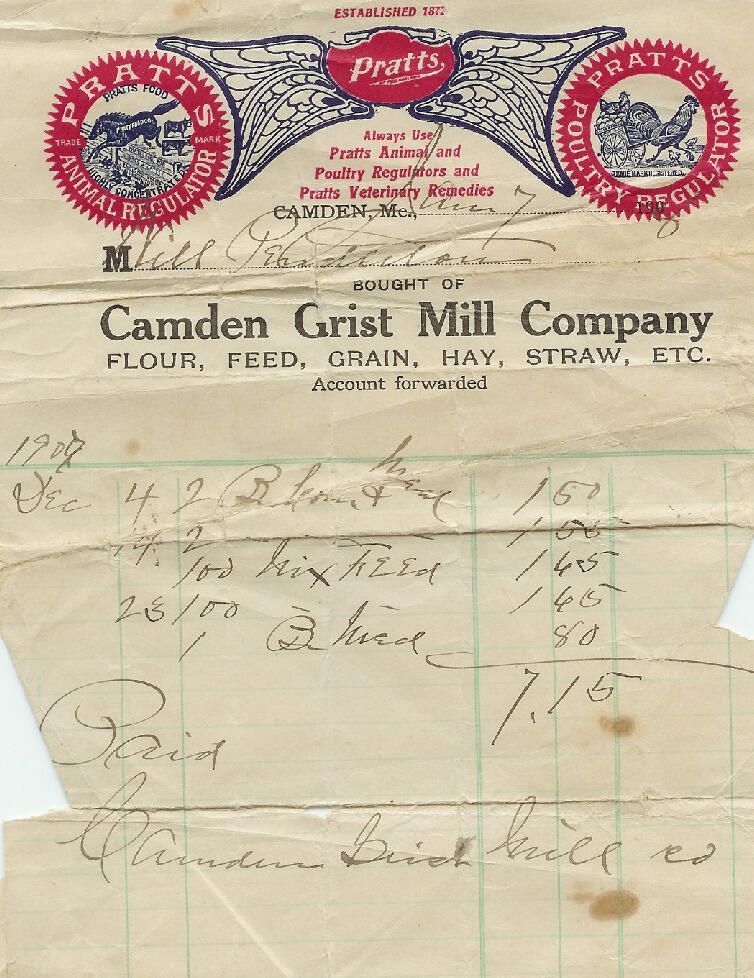 ESTABLISHED 1872
Pratts
PRATTS
PRATTS FOOD
TRADE MARK
HIGHLY CONCENTRATED
ANIMAL REGULATOR
PRATTS
POULTRY REGULATOR
Always Use
Pratts Animal and
Poultry Regulators and
Pratts Veterinary Remedies
CAMDEN, Me., 7 190
M Will
BOUGHT OF
Camden Grist Mill Company
FLOUR, FEED, GRAIN, HAY, STRAW, ETC.
Account forwarded
1907
Dec 4 2 B Corn & Meal 1 50
14 2 1 55
100 Mix FEEd 1 65
23 100 1 65
1 B Meal 80
7.15
Paid
Camden Grist Mill Co